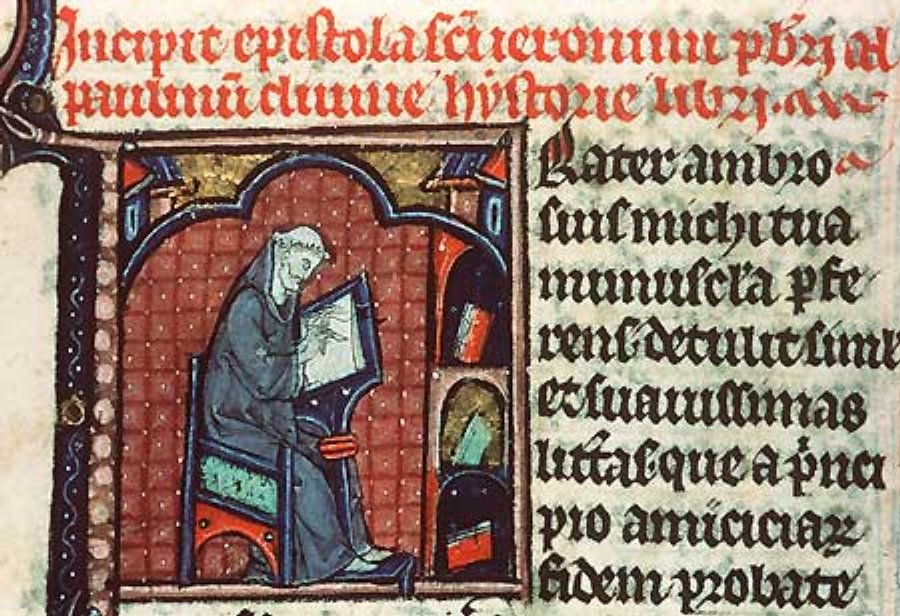 Incipit ep̄istola sc̄i ieronimi pbrī ad
paulinū diuine hystorie libri.
Rater ambro
sius michi tua
munuscl̄a ꝑfe
rens detulit siml̄
et suauissimas
litt̄as que a pͥnci
pio amiciciaꝝ
fidem probate